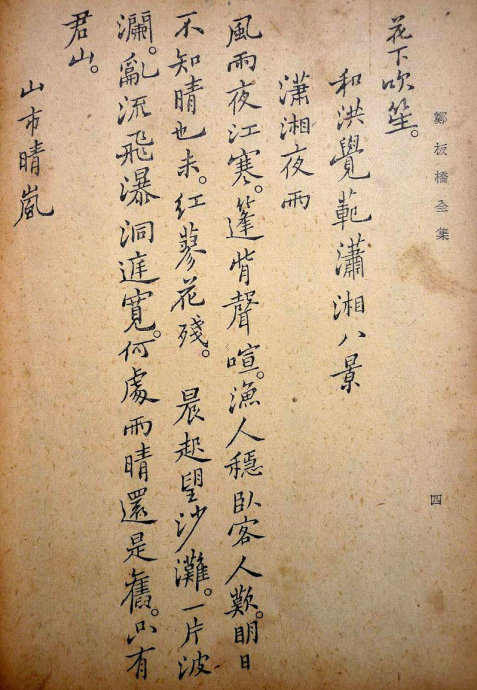 鄭板橋全集
四
花下吹笙。
和洪覺範瀟湘八景
瀟湘夜雨
風雨夜江寒。篷背聲喧。漁人穩臥客人歎。明日
不知晴也未。紅蓼花殘。　晨起望沙灘。一片波
瀾。亂流飛瀑洞庭寬。何處雨晴還是舊。只有
君山。
山市晴嵐